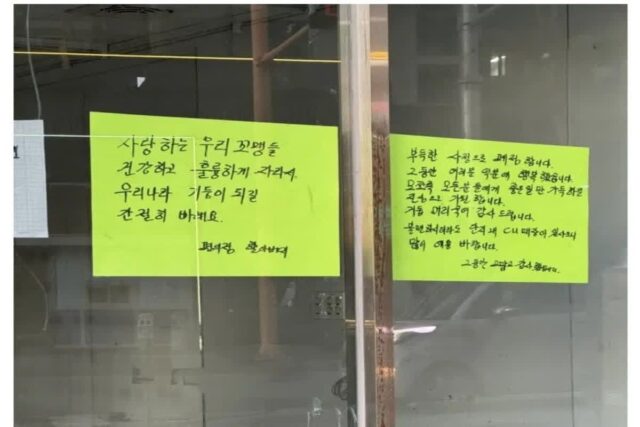 사랑하는 우리 꼬맹들
건강하고 훌륭하게 자라서
우리나라 기둥이 되길
간절히 바래요.
편의점 할아버지
부득한 사정으로 폐점 합니다.
그동안 여러분 덕분에 행복 했습니다.
모쪼록 모든분들에게 좋은일만 가득하길
진심으로 기원 합니다.
거듭 머리숙여 감사 드립니다.
불편하시더라도 CU
많이 애용 바랍니다.
그동안 고맙고 감사 했습니다.